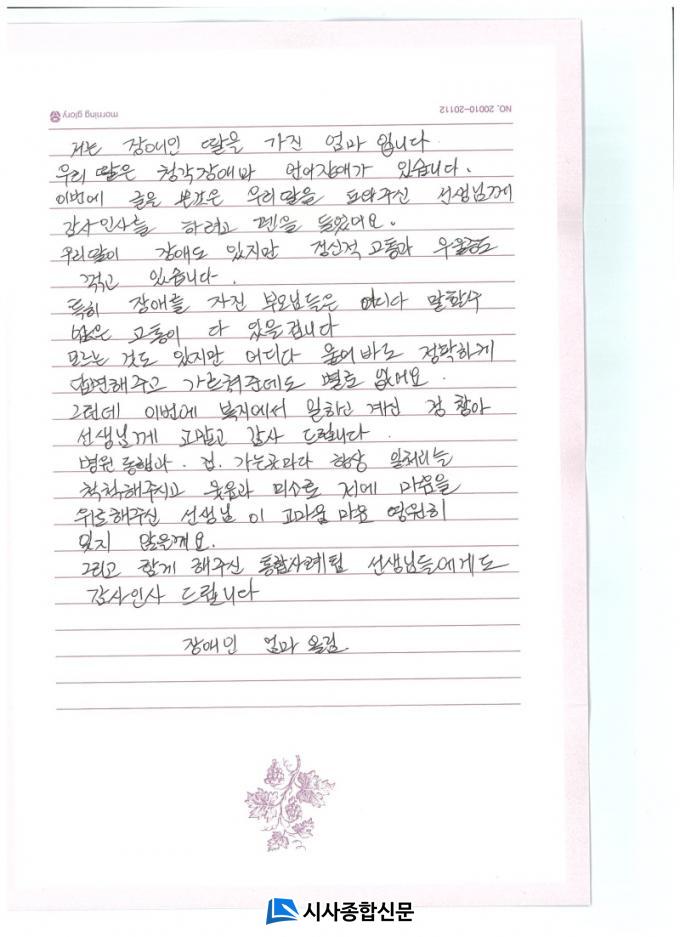 morning glory
NO. 20010-20112
저는 장애인 딸을 가진 엄마 입니다
우리 딸은 청각장애와 언어장애가 있습니다.
이번에 글을 쓰것은 우리딸을 도와주신 선생님께
감사인사를 하려고 펜을 들었어요.
우리딸이 장애도 있지만 정신적 고통과 우울증도
겪고 있습니다.
특히 장애를 가진 부모님들은 어디다 말할수
없은 고통이 다 있을겁니다
모르는 것도 있지만 어디다 물어바도 정확하게
답변해주고 가르쳐주는데도 별로 없어요.
그런데 이번에 복지에서 일하고 계신 정
선생님께 고맙고 감사 드립니다.
병원동행과. 집. 가는곳마다 항상 일처리를
척척해주시고 웃음과 미소로 저에 마음을
위로해주신 선생님 이 고마움 마음 영원히
잊지 않을께요.
그리고 함께 해주신 통합사례팀 선생님들에게도
감사인사 드립니다
장애인 엄마 올림.
시사종합신문